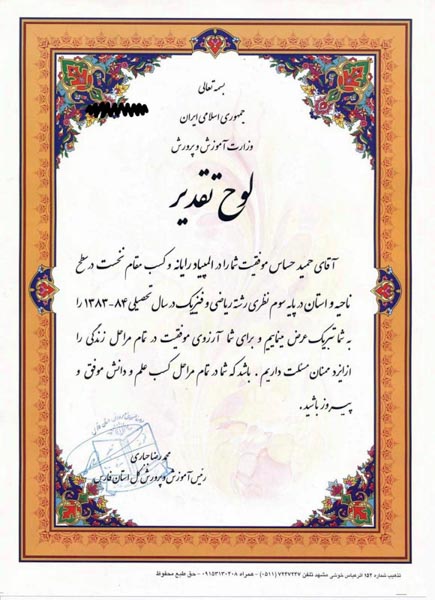 بسمه تعالی
جمهوری اسلامی ایران
وزارت آموزش و پرورش
لوح تقدیر
آقای حمید حساس موفقیت شما را در المپیاد رایانه و کسب مقام نخست در سطح
ناحیه و استان در پایه سوم نظری رشته ریاضی و فیزیک در سال تحصیلی ۸۴-۱۳۸۳ را
به شما تبریک عرض مینماییم و برای شما آرزوی موفقیت در تمام مراحل زندگی را
از ایزد منان مسئلت داریم . باشد که شما در تمام مراحل کسب علم و دانش موفق و
پیروز باشید.
محمد رضا
رئیس آموزش و پرورش کل استان فارس
تذهیب شماره ۱۵۲ اثر عباس خوشی مشهد تلفن ۷۲۴۷۲۴۷ (۰۵۱۱) - همراه ۰۹۱۵۳۱۳۰۲۰۸ - حق طبع محفوظ